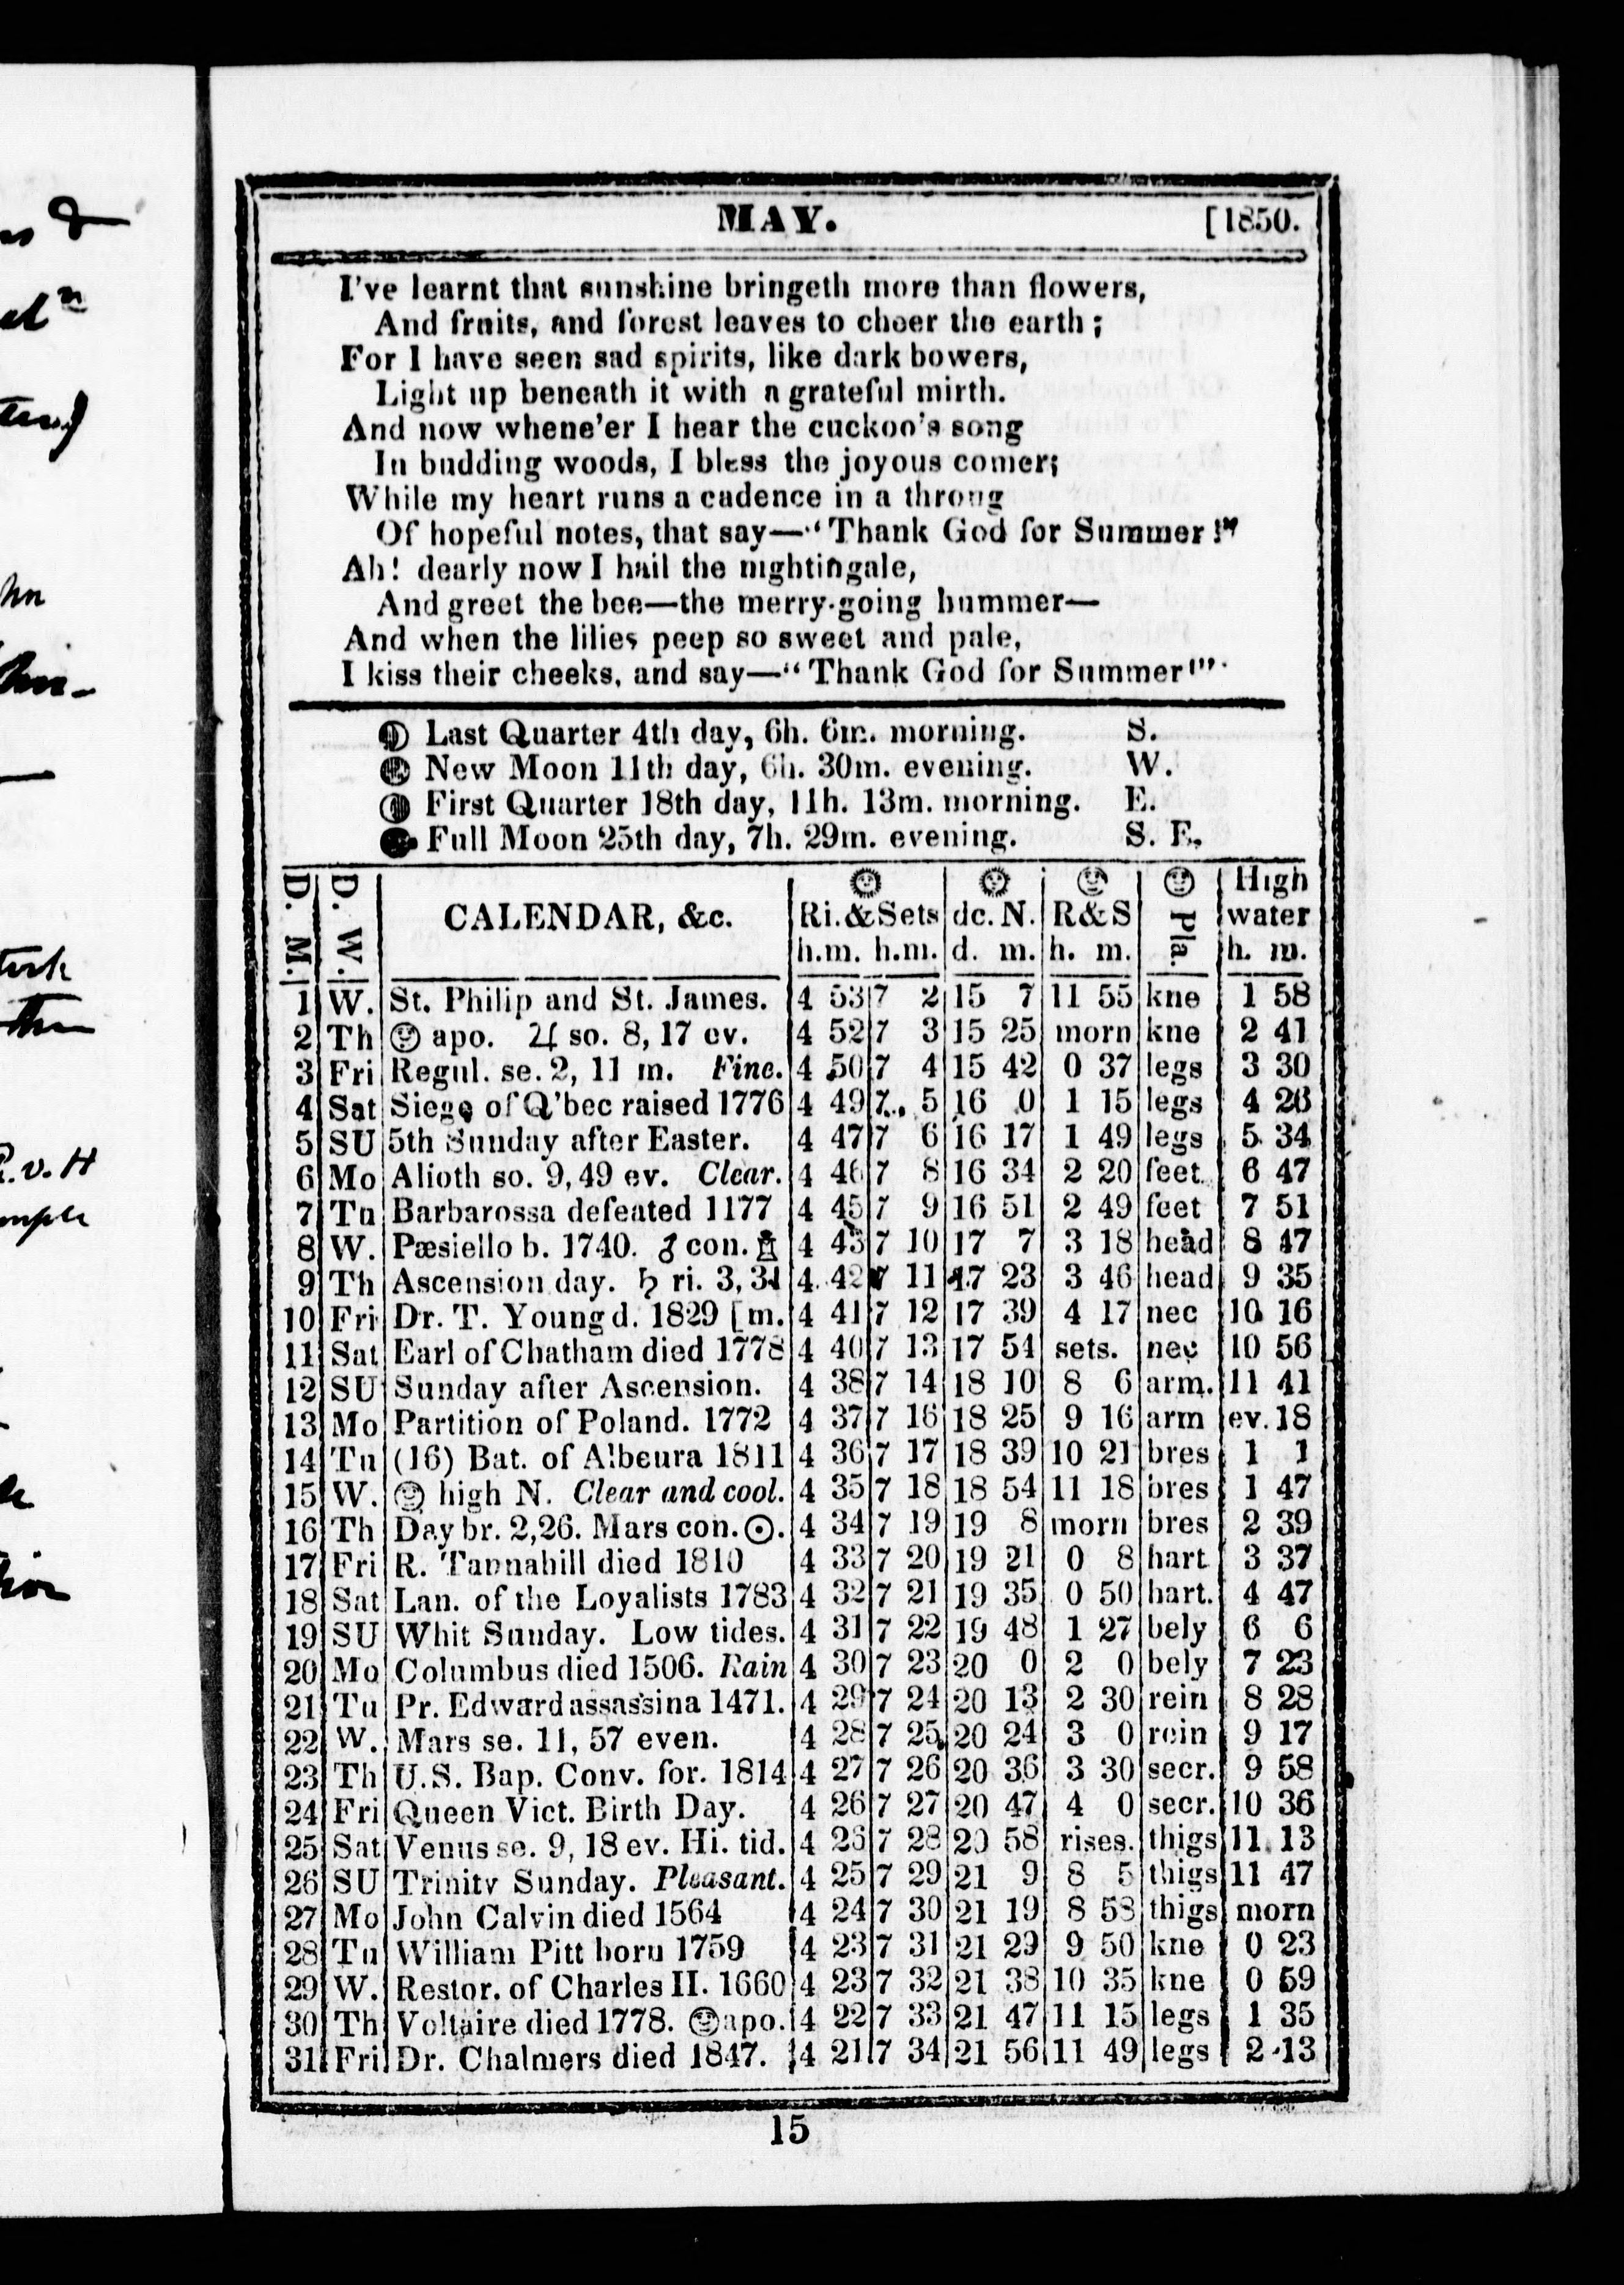 MAY. [1850.
I've learnt that sunshine bringeth more than flowers,
And fruits, and forest leaves to cheer the earth;
For I have seen sad spirits, like dark bowers,
Light up beneath it with a grateful mirth.
And now whene'er I hear the cuckoo's song
In budding woods, I bless the joyous comer;
While my heart runs a cadence in a throng
Of hopeful notes, that say—"Thank God for Summer!"
Ah! dearly now I hail the nightingale,
And greet the bee—the merry-going hummer—
And when the lilies peep so sweet and pale,
I kiss their cheeks, and say—"Thank God for Summer!"
Last Quarter 4th day, 6h. 6m. morning. S.
New Moon 11th day, 6h. 30m. evening. W.
First Quarter 18th day, 11h. 13m. morning. E.
Full Moon 25th day, 7h. 29m. evening. S. E.
D. M. D. W. CALENDAR, &c. Ri.&Sets dc. N. R&S Pla. High water
h.m. h.m. d. m. h. m. h. m.
1 W. St. Philip and St. James. 4 53 7 2 15 7 11 55 kne 1 58
2 Th ☺ apo. ♃ so. 8, 17 ev. 4 52 7 3 15 25 morn kne 2 41
3 Fri Regul. se. 2, 11 m. Fine. 4 50 7 4 15 42 0 37 legs 3 30
4 Sat Siege of Q'bec raised 1776 4 49 7 5 16 0 1 15 legs 4 26
5 SU 5th Sunday after Easter. 4 47 7 6 16 17 1 49 legs 5 34
6 Mo Alioth so. 9,49 ev. Clear. 4 46 7 8 16 34 2 20 feet 6 47
7 Tu Barbarossa defeated 1177 4 45 7 9 16 51 2 49 feet 7 51
8 W. Pæsiello b. 1740. ♂ con. 4 43 7 10 17 7 3 18 head 8 47
9 Th Ascension day. ♄ ri. 3, 31 4 42 7 11 17 23 3 46 head 9 35
10 Fri Dr. T. Young d. 1829 [m. 4 41 7 12 17 39 4 17 nec 10 16
11 Sat Earl of Chatham died 1778 4 40 7 13 17 54 sets. nec 10 56
12 SU Sunday after Ascension. 4 38 7 14 18 10 8 6 arm. 11 41
13 Mo Partition of Poland. 1772 4 37 7 16 18 25 9 16 arm ev. 18
14 Tu (16) Bat. of Albeura 1811 4 36 7 17 18 39 10 21 bres 1 1
15 W. ☺ high N. Clear and cool. 4 35 7 18 18 54 11 18 bres 1 47
16 Th Day br. 2,26. Mars con. ☉. 4 34 7 19 19 8 morn bres 2 39
17 Fri R. Tannahill died 1810 4 33 7 20 19 21 0 8 hart 3 37
18 Sat Lan. of the Loyalists 1783 4 32 7 21 19 35 0 50 hart. 4 47
19 SU Whit Sunday. Low tides. 4 31 7 22 19 48 1 27 bely 6 6
20 Mo Columbus died 1506. Rain 4 30 7 23 20 0 2 0 bely 7 23
21 Tu Pr. Edward assassina 1471. 4 29 7 24 20 13 2 30 rein 8 28
22 W. Mars se. 11, 57 even. 4 28 7 25 20 24 3 0 rein 9 17
23 Th U.S. Bap. Conv. for. 1814 4 27 7 26 20 36 3 30 secr. 9 58
24 Fri Queen Vict. Birth Day. 4 26 7 27 20 47 4 0 secr. 10 36
25 Sat Venus se. 9, 18 ev. Hi. tid. 4 26 7 28 20 58 rises. thigs 11 13
26 SU Trinity Sunday. Pleasant. 4 25 7 29 21 9 8 5 thigs 11 47
27 Mo John Calvin died 1564 4 24 7 30 21 19 8 58 thigs morn
28 Tu William Pitt born 1759 4 23 7 31 21 29 9 50 kne 0 23
29 W. Restor. of Charles II. 1660 4 23 7 32 21 38 10 35 kne 0 59
30 Th Voltaire died 1778. ☺ apo. 4 22 7 33 21 47 11 15 legs 1 35
31 Fri Dr. Chalmers died 1847. 4 21 7 34 21 56 11 49 legs 2 13
15